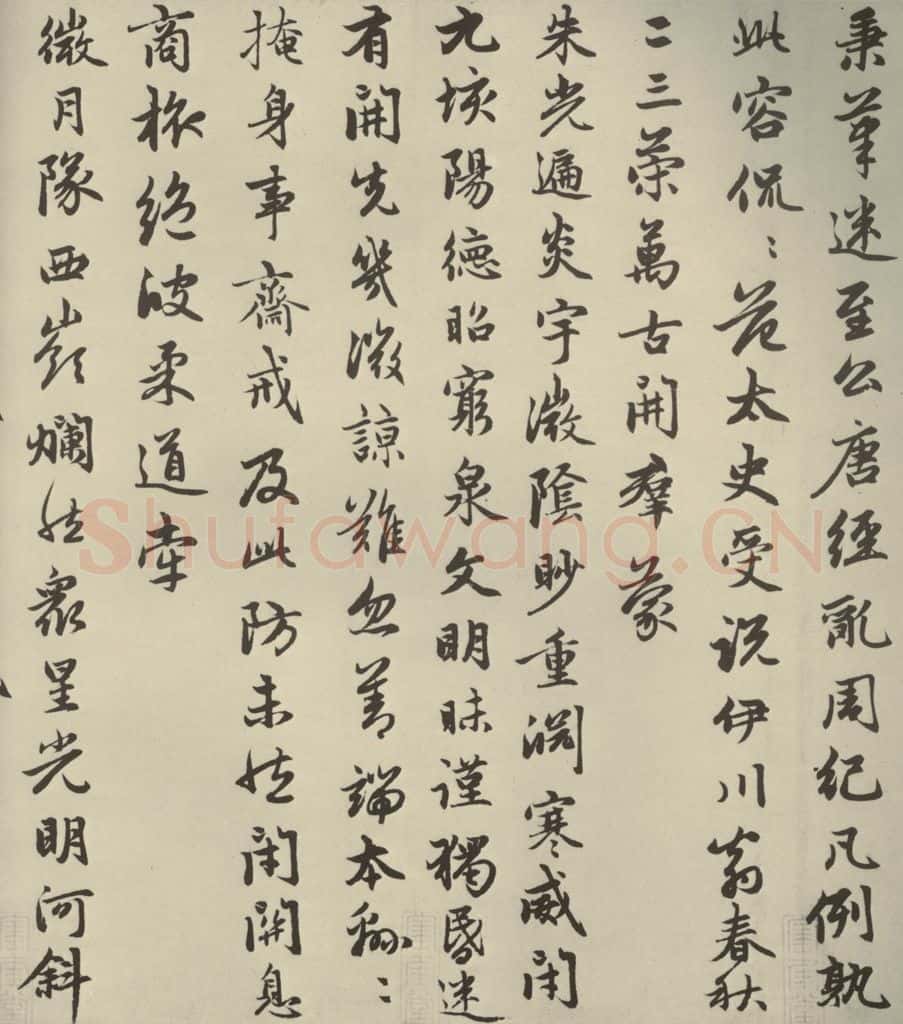 秉筆迷至公唐經亂周紀凡例孰
此容侃〻范太史受説伊川翁春秋
二三策萬古開羣蒙
朱光遍炎宇微陰眇重淵寒威閉
九垓陽德昭窮泉文明昧謹獨昏迷
有開先幾微諒難忽善端本綿〻
掩身事齋戒及此防未然閉關息
商旅絕彼柔道牽
微月隊西嶺爛然衆星光明河斜
Shufawang.CN